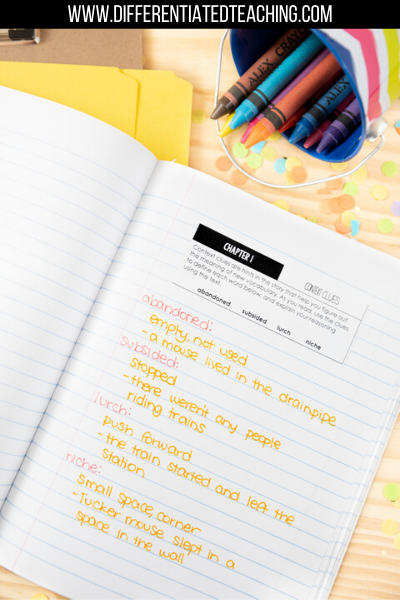 WWW.DIFFERENTIATEDTEACHING.COM
ALEX CRAYO
ALEX CRAY
CHAPTER 1
CONTEXT CLUES
Context Clues are hints in the story that help you figure out
the meaning of new vocabulary. As you read, use the clues
to define each word below, and explain your reasoning
using the text.
abandoned subsided lurch niche
abandoned:
empty, not used
- a mouse lived in the drainpipe
subsided:
stopped
- there weren't any people
riding trains
lurch:
push forward
- the train started and left the
station
niche:
small space, corner
- Tucker mouse slept in a
space in the wall